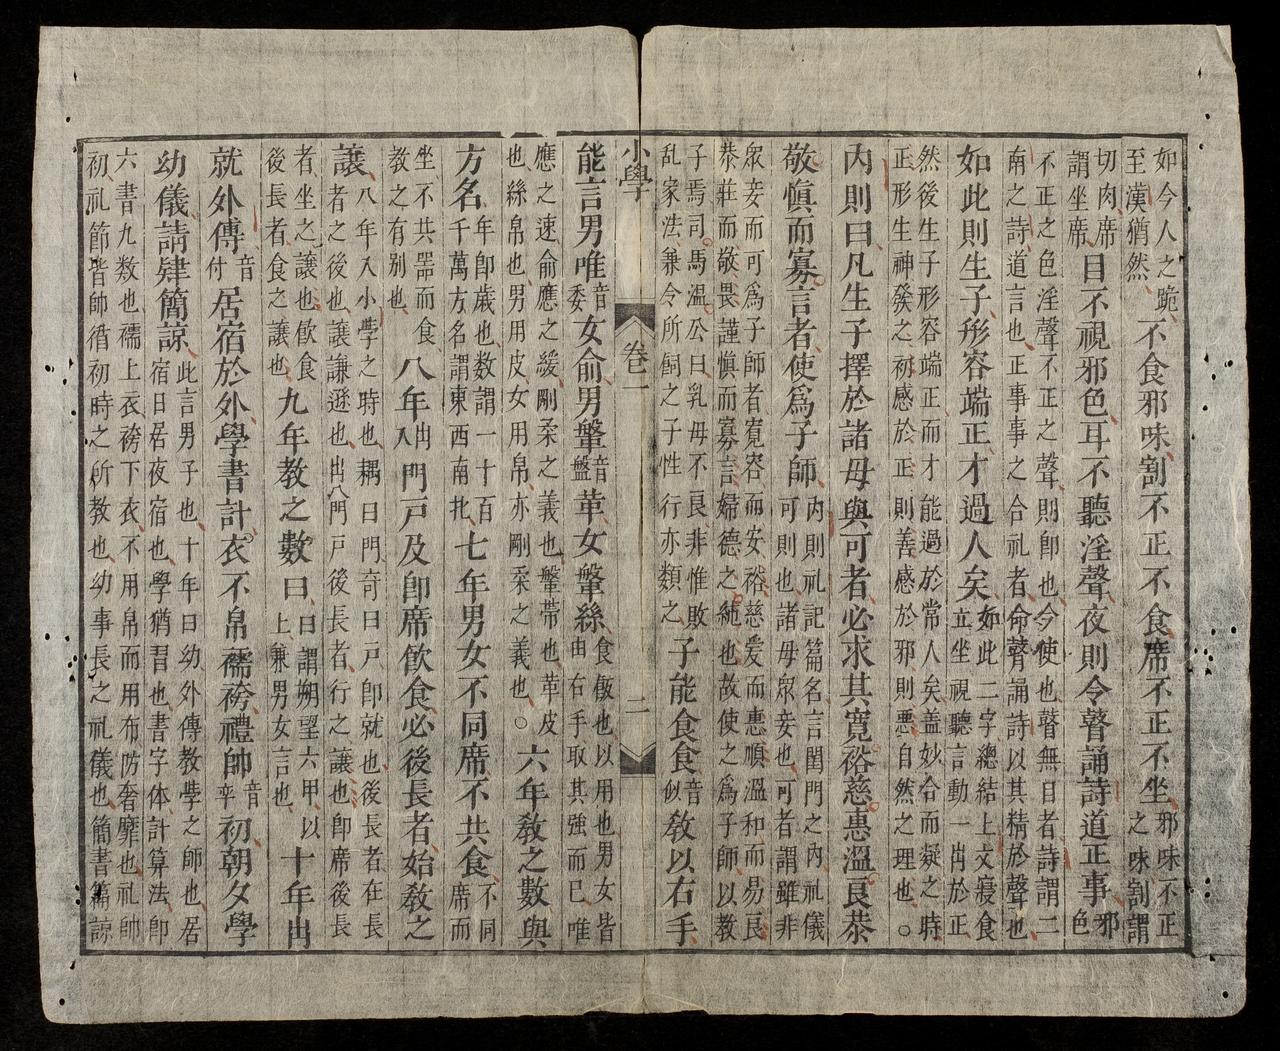 如今人之跪、
至漢猶然、
不食邪味、割不正不食、席不正不坐、
邪味、不正
之味、割謂
切肉、席
謂坐席、
目不視邪色、耳不聽淫聲、夜則令瞽誦詩道正事、
邪
色
不正之色、淫聲、不正之聲、則、即也、令、使也、瞽、無目者、詩、謂二
南之詩、道、言也、正事、事之合礼者、命瞽誦詩、以其精於聲也、
如此則生子形容端正、才過人矣、
如此二字、總結上文、寢食
立坐視聽言動、一出於正、
然後生子、形容端正、而才能過於常人矣、盖妙合而凝之時、
正形生神發之初、感於正、則善、感於邪、則悪、自然之理也。○
內則曰、凡生子、擇於諸母與可者、必求其寬裕慈惠溫良恭
敬愼而寡言者、使爲子師、
内則、礼記篇名、言閨門之内、礼儀
可則也、諸母、眾妾也、可者、謂雖非
眾妾、而可爲子師者、寬容而安裕、慈爱而惠順、溫和而易良、
恭莊而敬畏、謹愼而寡言、婦德之純也、故使之爲子師、以教
子焉、司馬溫公曰、乳母不良、非惟敗
乱家法、兼令所飼之子、性行亦類之、
子能食食、
音
似
敎以右手、
小學
卷一
二
能言、男唯
音
委
女俞、男鞶
音
盤
革、女鞶絲、
食、飯也、以、用也、男女皆
由右手、取其強而已、唯、
應之速、俞、應之緩、剛柔之義也、鞶、帶也、革、皮
也、絲、帛也、男用皮、女用帛、亦剛柔之義也。○
六年、敎之數與
方名、
年、即歲也、数、謂一十百
千萬、方名、謂東西南北、
七年、男女不同席、不共食、
不同
席而
坐、不共噐而食、
教之有别也、
八年、出
入
門戸、及卽席飮食、必後長者、始敎之
讓、
八年、入小學之時也、耦曰門、奇曰戸、即、就也、後長者、在長
者之後也、讓、謙遜也、出入門戸後長者、行之讓也、即席後長
者、坐之讓也、飮食
後長者、食之讓也、
九年、教之數日、
日、謂朔望六甲、以
上兼男女言也、
十年、出
就外傅、
音
付
居宿於外、學書計、衣不帛襦袴、禮帥
音
率
初、朝夕學
幼儀、請肄簡諒、
此言男子也、十年曰幼、外傅、教學之師也、居
宿、日居夜宿也、學、猶習也、書、字体、計、算法、即
六書九数也、襦、上衣、袴、下衣、不用帛而用布、防奢靡也、礼帥
初、礼節皆帥循初時之所教也、幼事長之礼儀也、簡、書篇、諒